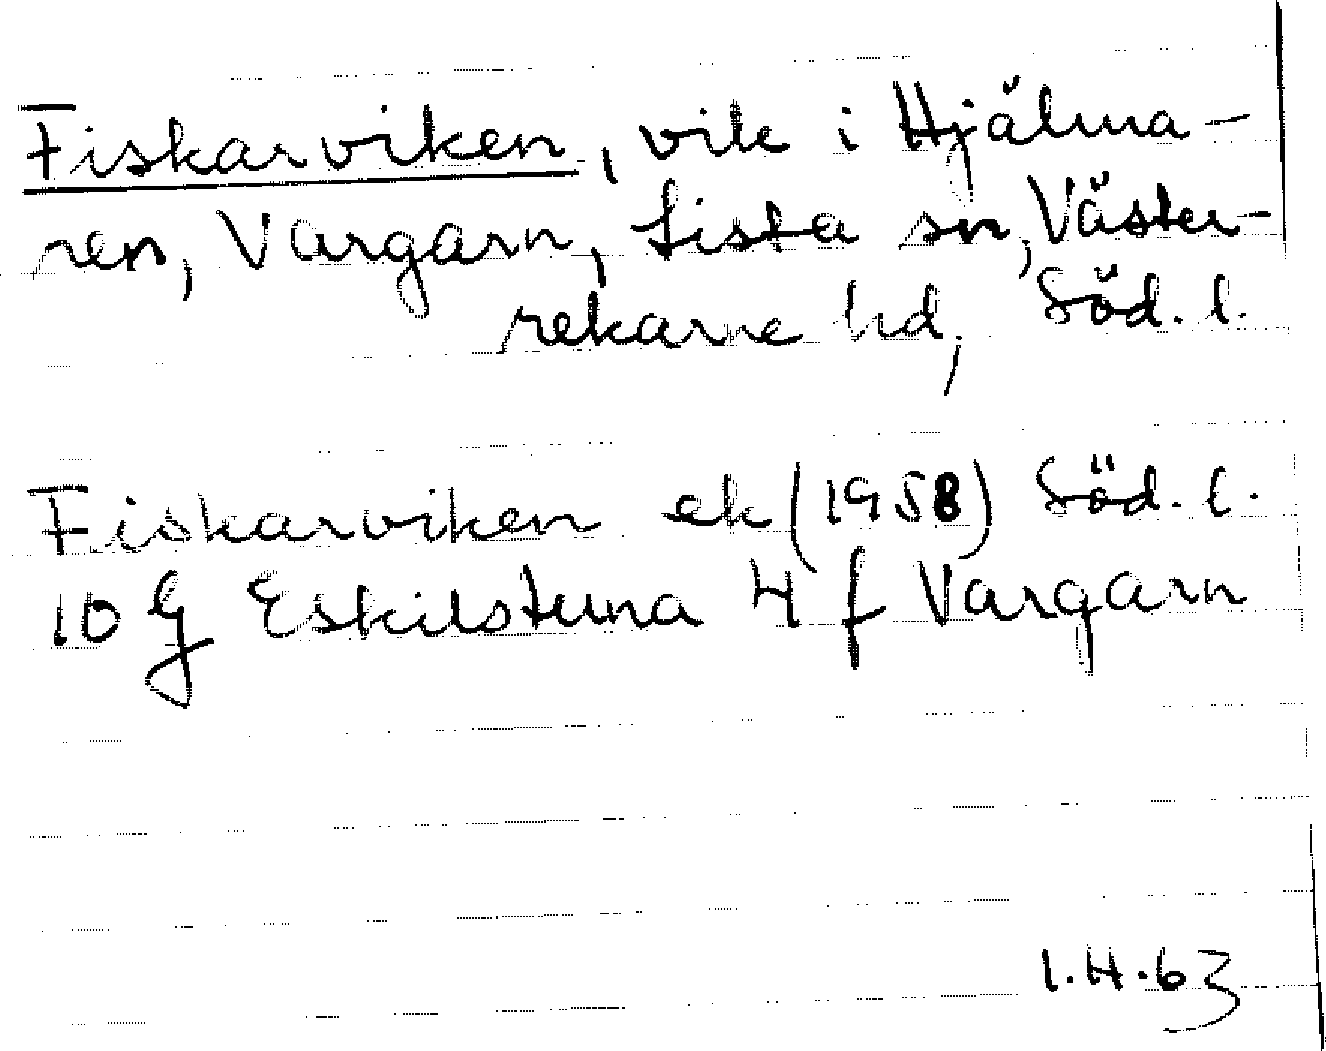 Fiskarviken, vik i Hjälma-
ren, Vargarn, Lista sn, Väster-
rekarne hd, Söd. l.
Fiskarviken ek (1958) Söd. l.
10 G Eskilstuna 4 f Vargarn
I.H.63